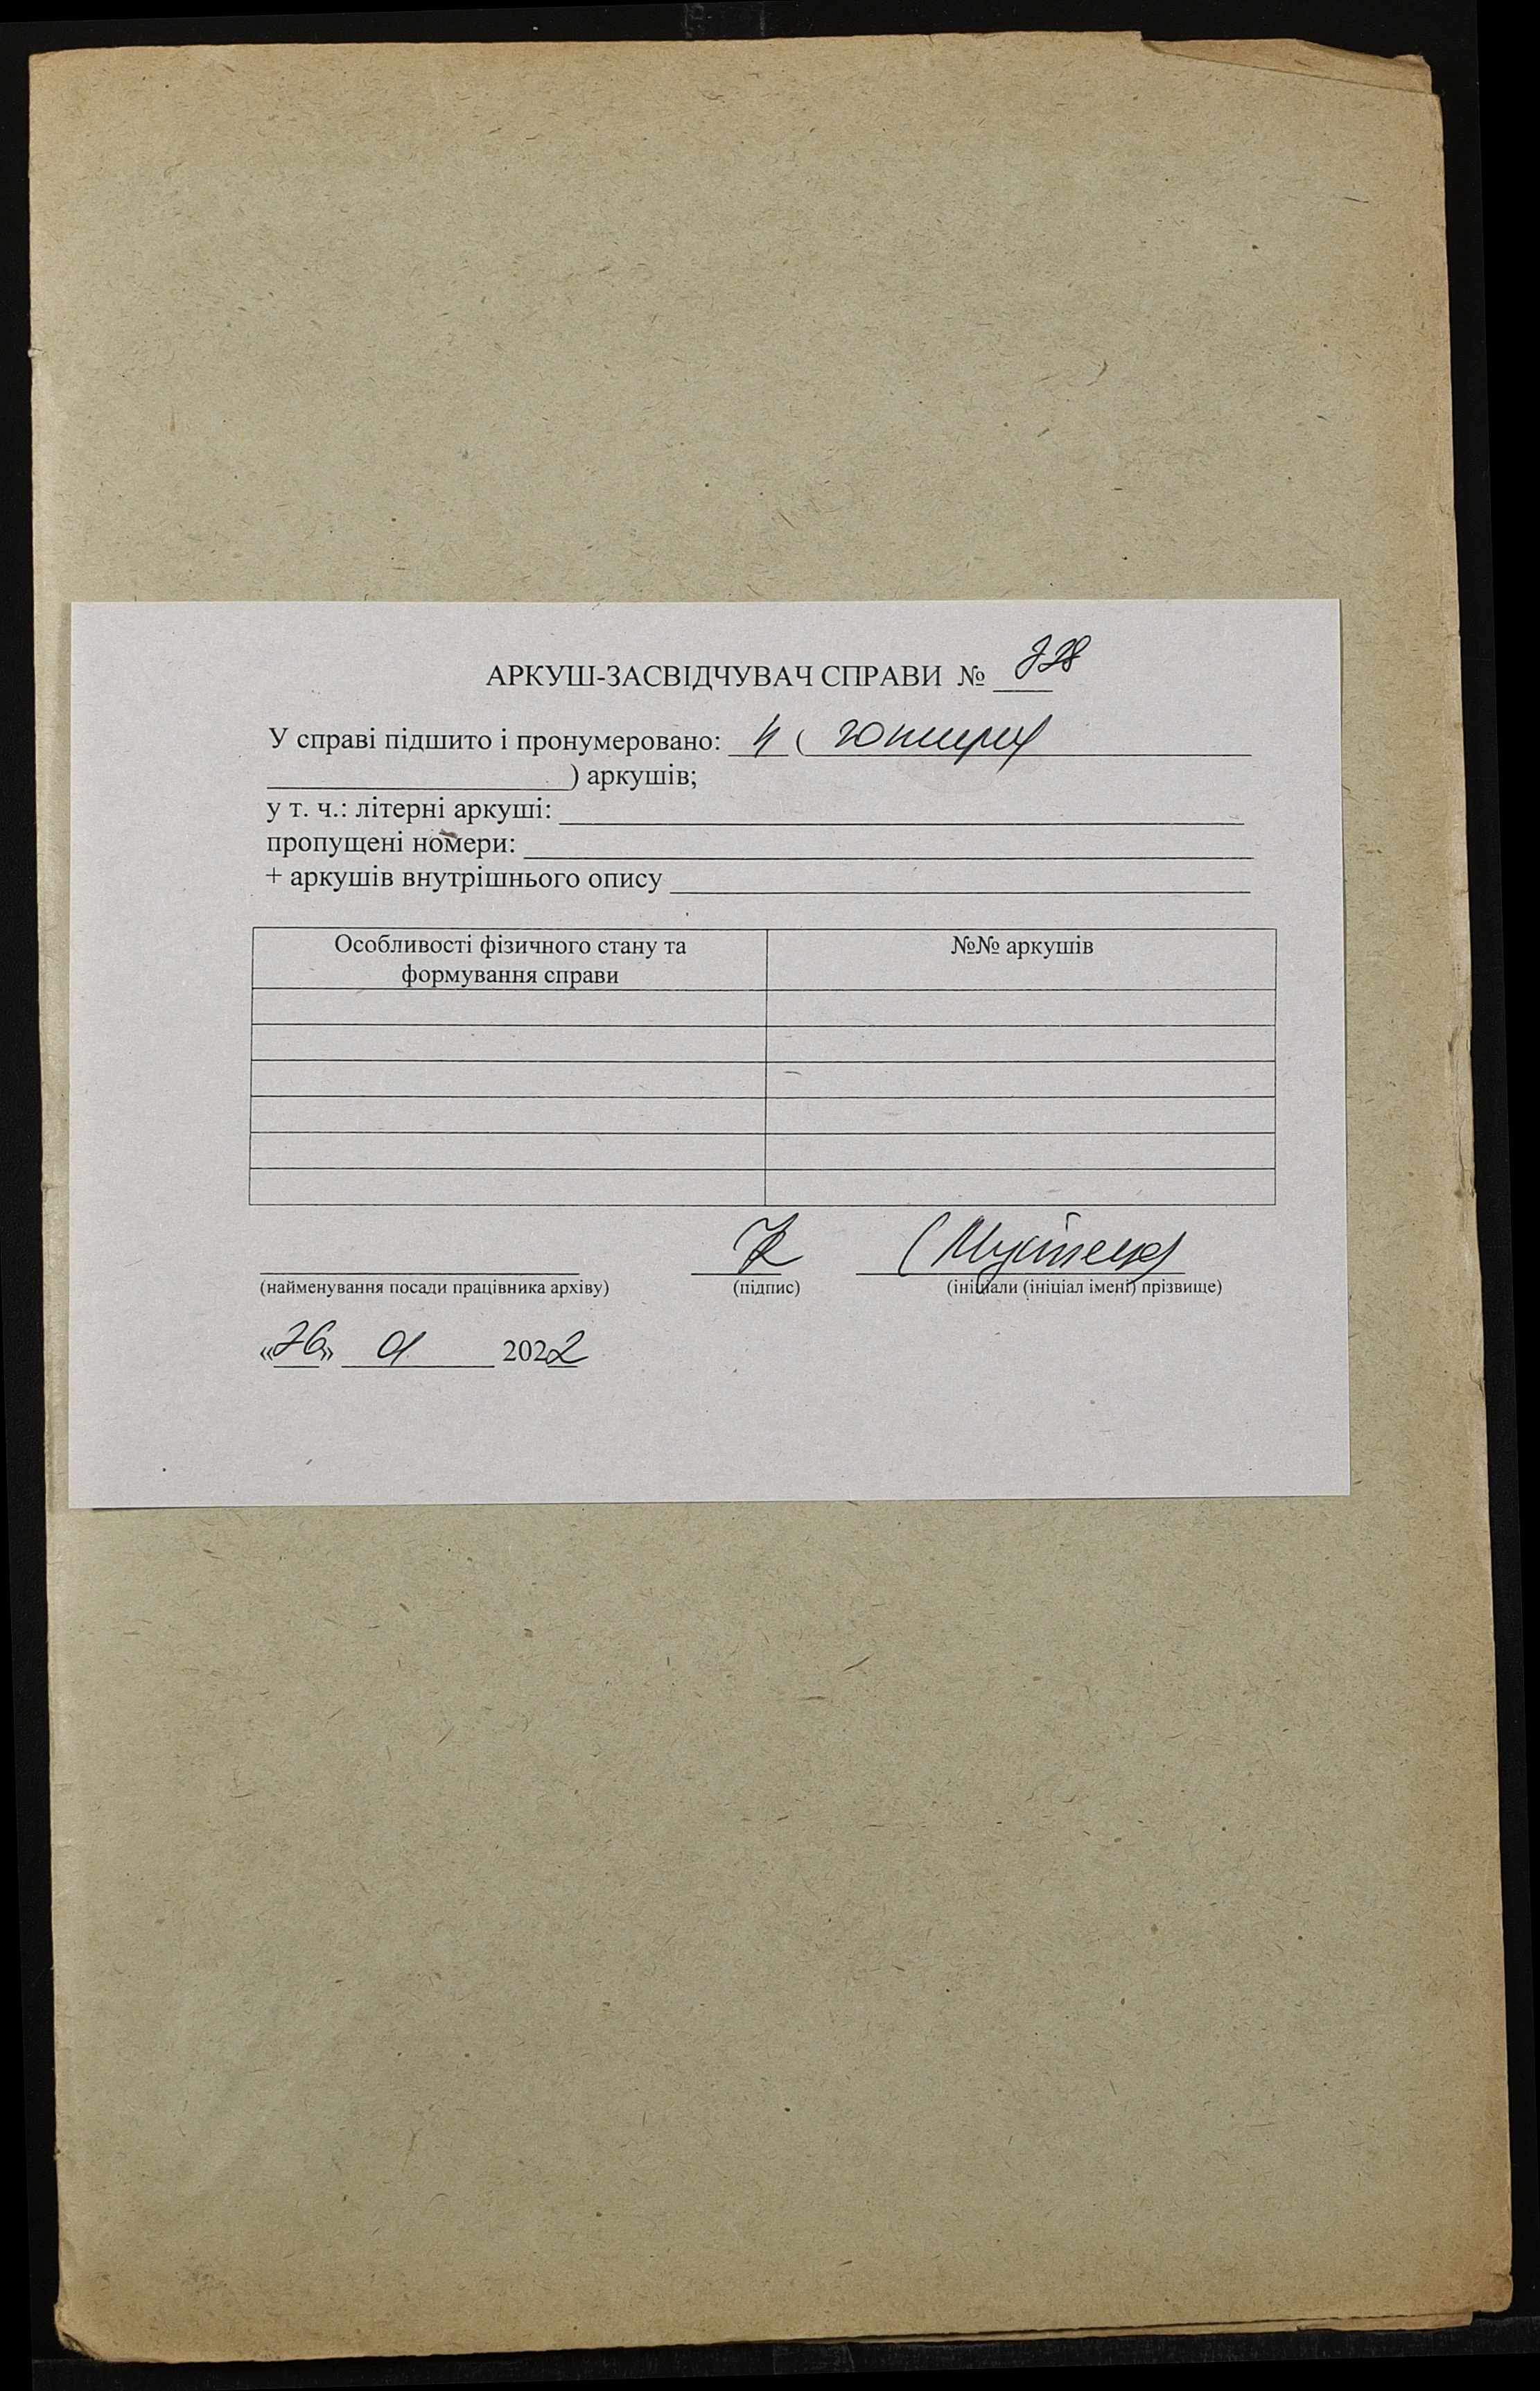 АРКУШ-ЗАСВІДЧУВАЧ СПРАВИ №
У справі підшито і пронумеровано: 4 ( чотири
) аркушів;
у т. ч.: літерні аркуші:
пропущені номери:
+ аркушів внутрішнього опису
Особливості фізичного стану та
формування справи
№№ аркушів
(найменування посади працівника архіву)
(підпис)
(ініціали (ініціал імені) прізвище)
«26» 01 2022